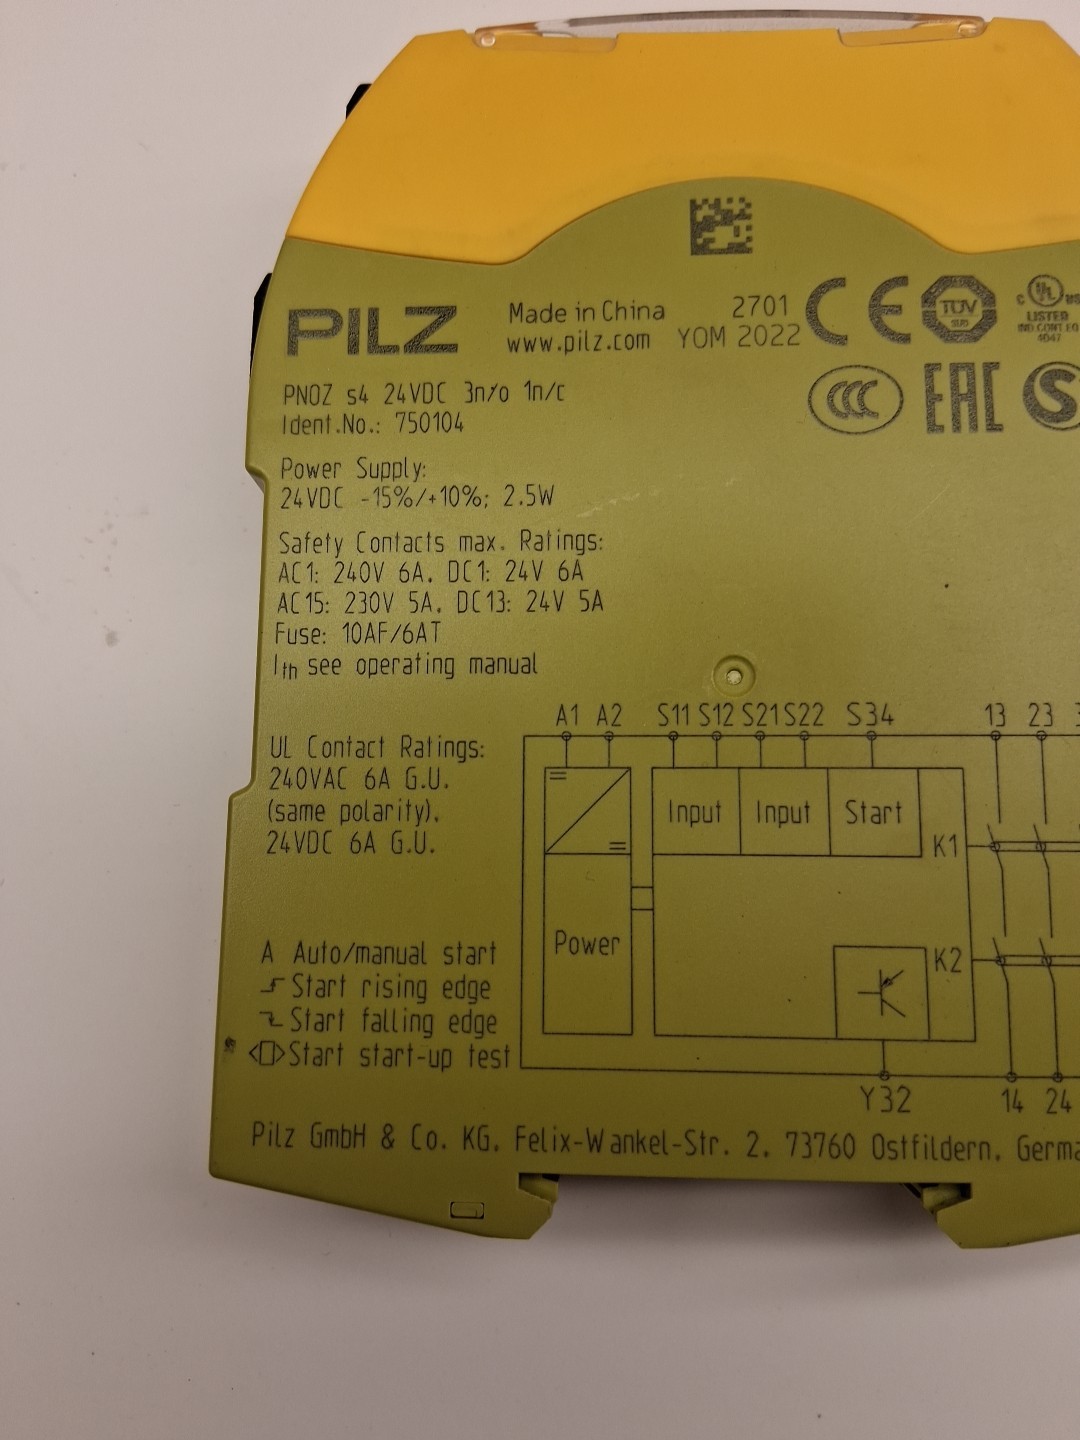 PILZ
Made in China 2701
www.pilz.com YOM 2022
CE
TÜV
SÜD
C UL US
LISTED
IND.CONT.EQ
4D47
CCC
EAC
S
PNOZ s4 24VDC 3n/o 1n/c
Ident.No.: 750104
Power Supply:
24VDC -15%/+10%; 2.5W
Safety Contacts max. Ratings:
AC1: 240V 6A, DC1: 24V 6A
AC15: 230V 5A, DC13: 24V 5A
Fuse: 10AF/6AT
Ith see operating manual
UL Contact Ratings:
240VAC 6A G.U.
(same polarity),
24VDC 6A G.U.
A Auto/manual start
Start rising edge
Start falling edge
Start start-up test
A1 A2 S11 S12 S21 S22 S34 13 23
Input Input Start
K1
Power
K2
Y32 14 24
Pilz GmbH & Co. KG, Felix-Wankel-Str. 2, 73760 Ostfildern, Germa